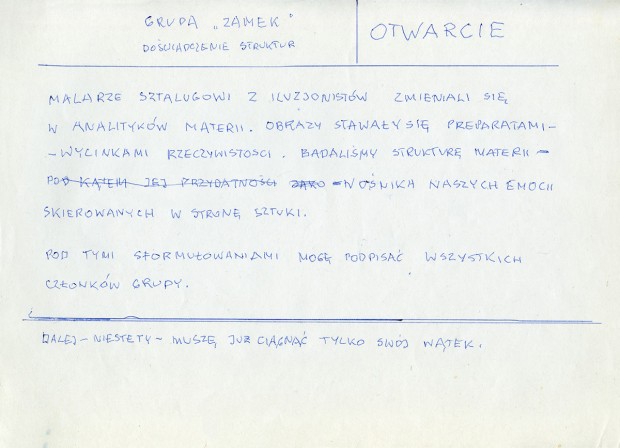 GRUPA „ZAMEK"
DOŚWIADCZENIE STRUKTUR
OTWARCIE
MALARZE SZTALUGOWI Z ILUZJONISTÓW ZMIENIALI SIĘ
W ANALITYKÓW MATERII. OBRAZY STAWAŁY SIĘ PREPARATAMI-
-WYCINKAMI RZECZYWISTOSCI. BADALIŚMY STRUKTURĘ MATERII -
POD KĄTEM JEJ PRZYDATNOŚCI JAKO - NOŚNIKA NASZYCH EMOCII
SKIEROWANYCH W STRONĘ SZTUKI.
POD TYMI SFORMUŁOWANIAMI MOGĘ PODPISAĆ WSZYSTKICH
CZŁONKÓW GRUPY.
DALEJ - NIESTETY - MUSZĘ JUŻ CIĄGNĄĆ TYLKO SWÓJ WĄTEK.